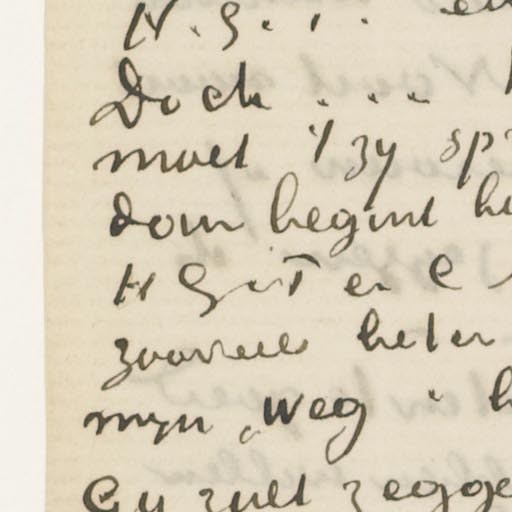 N. G. . .
Doch . . .
moet 't zy
dom begint
H G en E
zooveel beter
myn weg is
Gy zult zegge